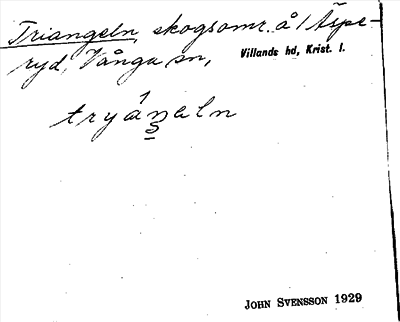 Triangeln, skogsomr. å Äspe-
ryd, Vånga sn, Villands hd, Krist. l.
tryáŋeln
JOHN SVENSSON 1929